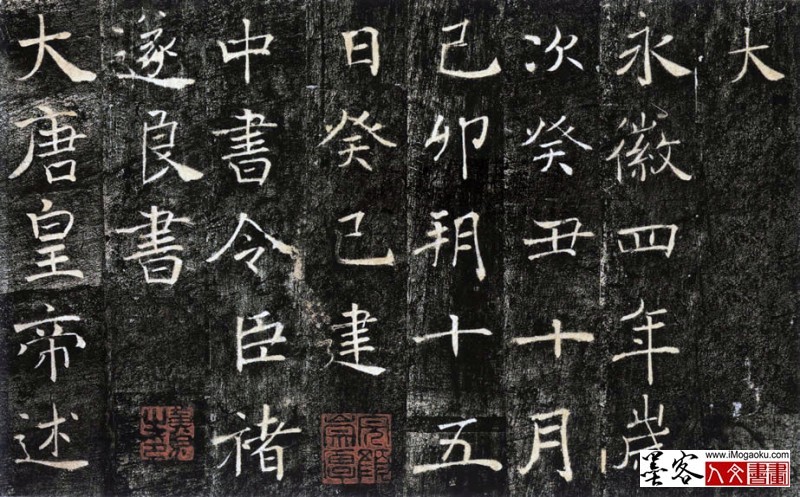 大
永徽四年歲
次癸丑十月
己卯朔十五
日癸巳建
中書令臣褚
遂良書
大唐皇帝述
www.iMogaoku.com
墨客人文書畫